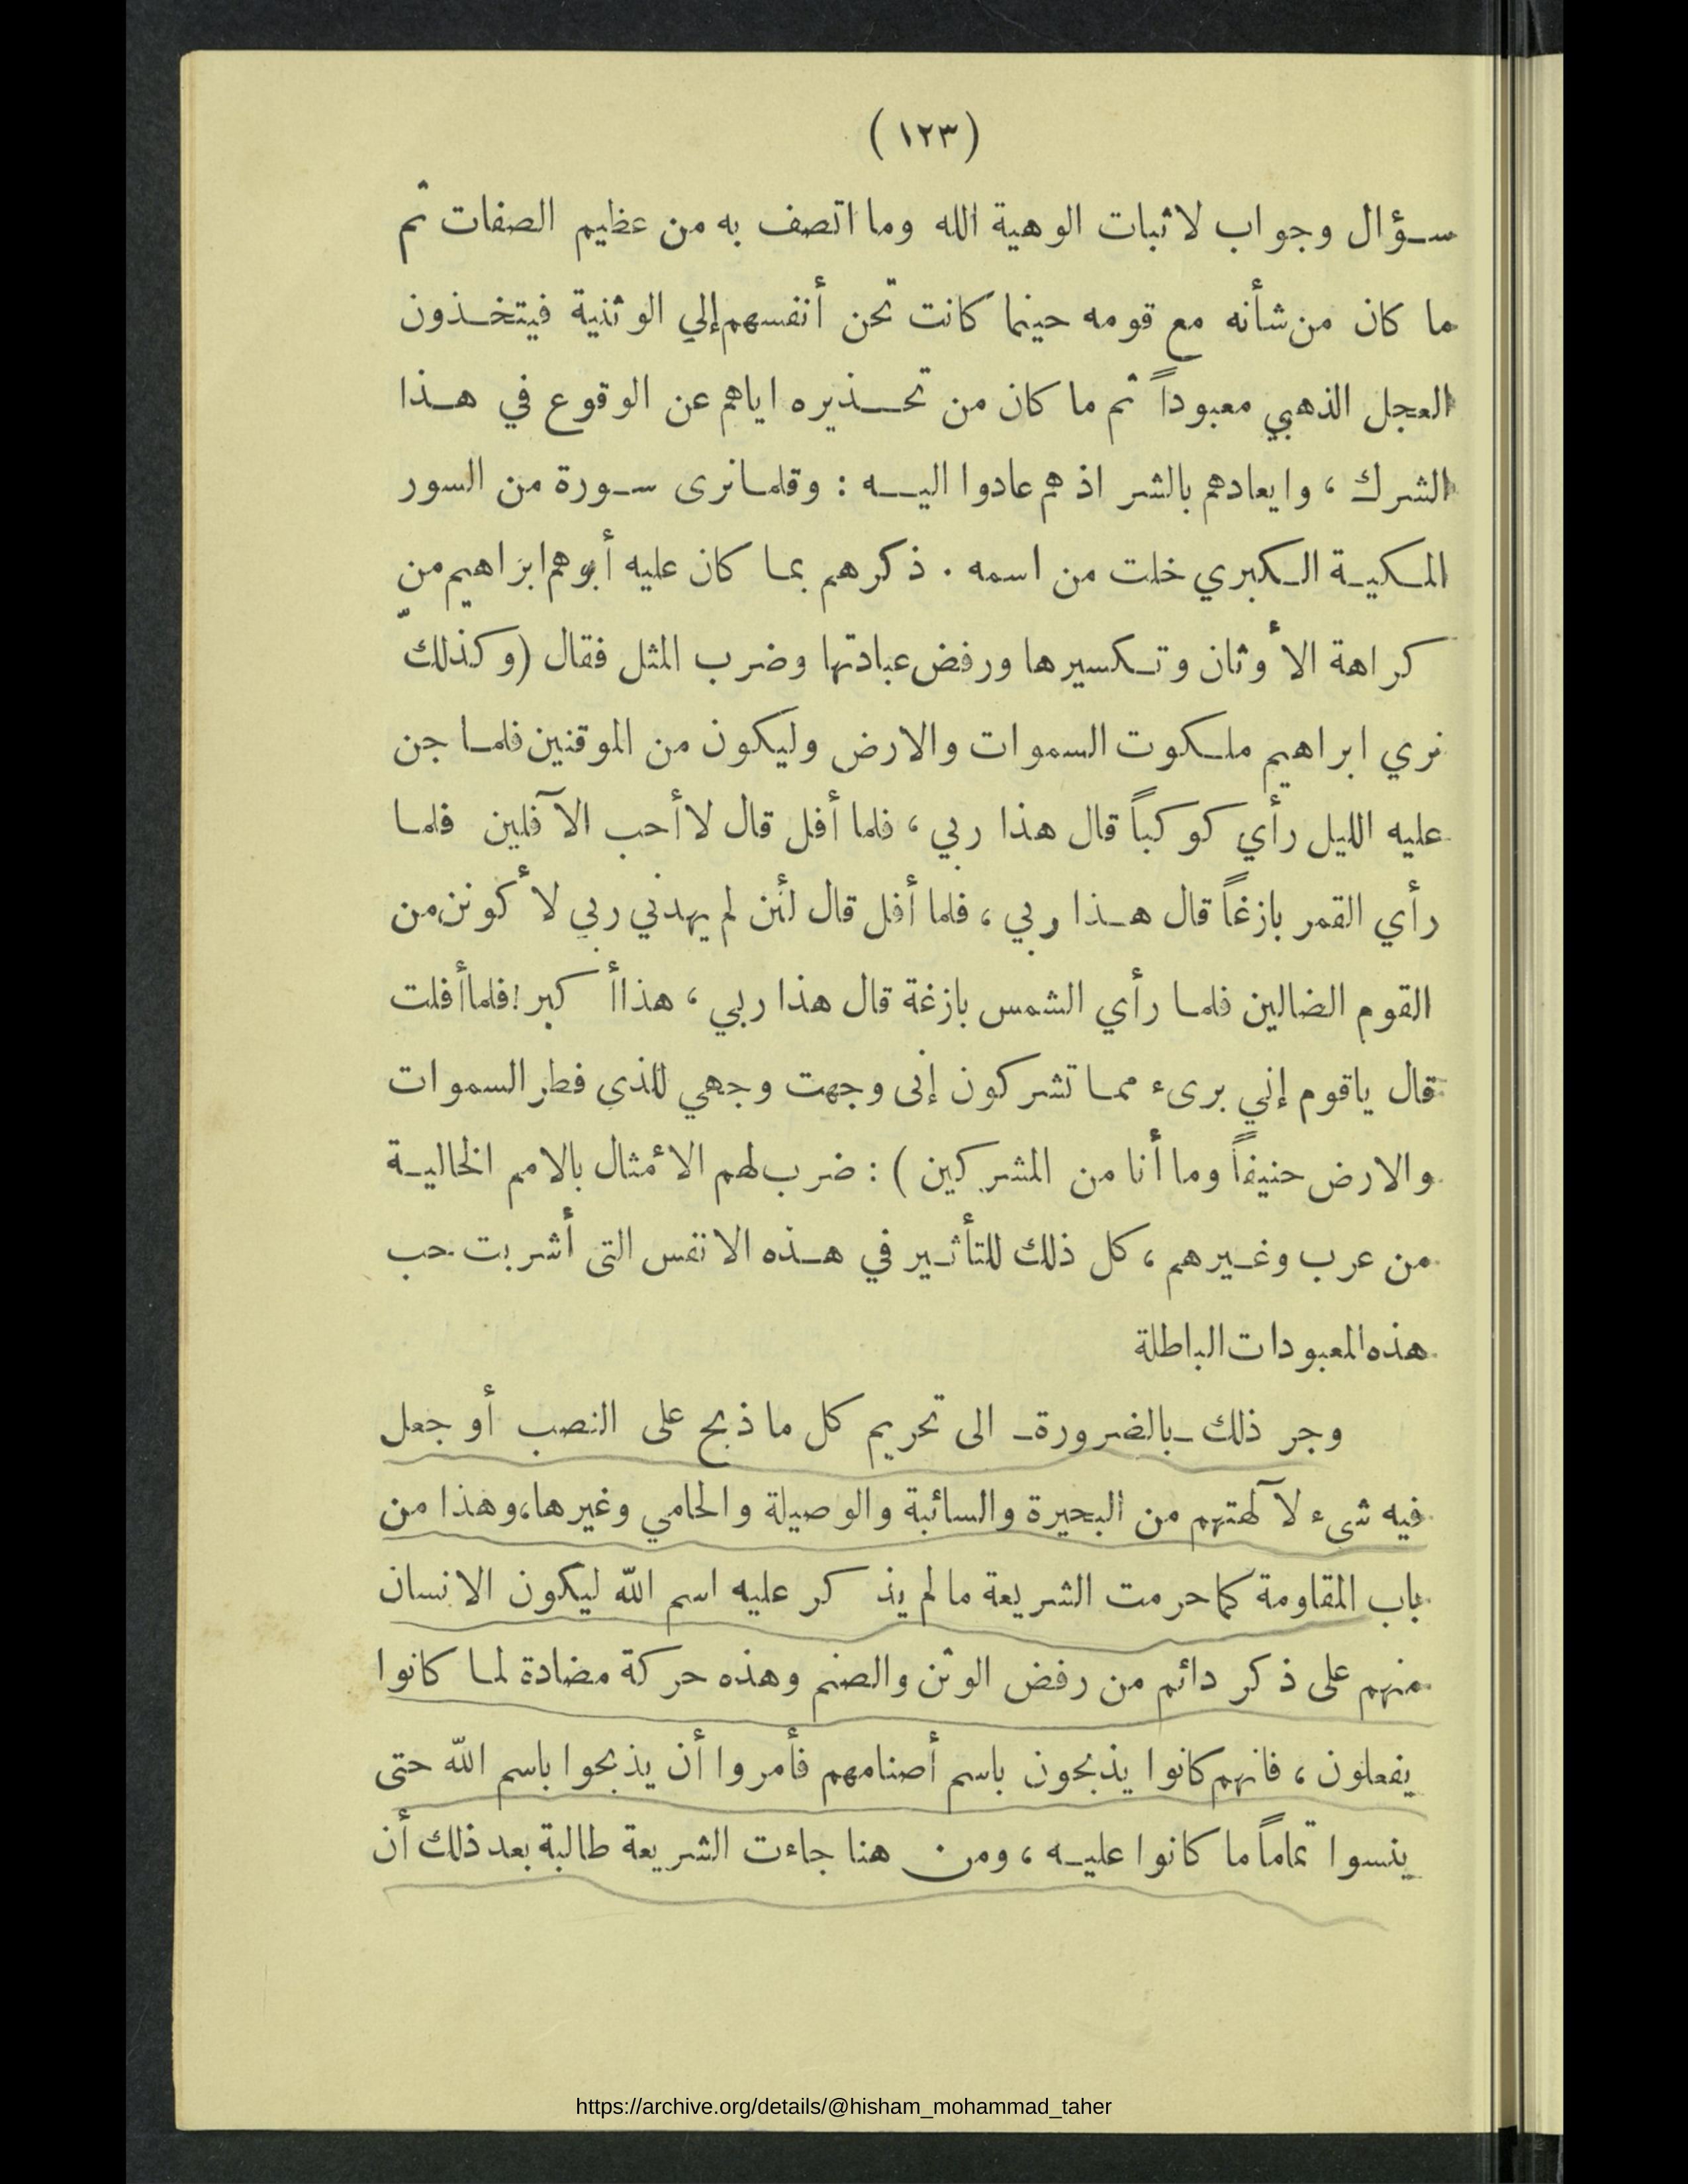 (١٢٣)
سؤال وجواب لاثبات الوهية الله وما اتصف به من عظيم الصفات ثم
ما كان من شأنه مع قومه حينما كانت تحن أنفسهم إلي الوثنية فيتخذون
العجل الذهبي معبوداً ثم ما كان من تحذيره اياهم عن الوقوع في هذا
الشرك ، وايعادهم بالشر اذ هم عادوا اليه : وقلما نرى سورة من السور
المكية الكبري خلت من اسمه . ذكرهم بما كان عليه أبوهم ابراهيم من
كراهة الأوثان وتكسيرها ورفض عبادتها وضرب المثل فقال (وكذلك
نري ابراهيم ملكوت السموات والارض وليكون من الموقنين فلما جن
عليه الليل رأي كوكباً قال هذا ربي ، فلما أفل قال لا أحب الآفلين فلما
رأي القمر بازغاً قال هذا ربي ، فلما أفل قال لئن لم يهدني ربي لأكونن من
القوم الضالين فلما رأي الشمس بازغة قال هذا ربي ، هذا أكبر ! فلما أفلت
قال ياقوم إني برىء مما تشركون إنى وجهت وجهي للذى فطر السموات
والارض حنيفاً وما أنا من المشركين ) : ضرب لهم الأمثال بالامم الخالية
من عرب وغيرهم ، كل ذلك للتأثير في هذه الانفس التى أشربت حب
هذه المعبودات الباطلة
وجر ذلك ـ بالضرورة ـ الى تحريم كل ما ذبح على النصب أو جعل
فيه شىء لآلهتهم من البحيرة والسائبة والوصيلة والحامي وغيرها، وهذا من
باب المقاومة كما حرمت الشريعة ما لم يذكر عليه اسم الله ليكون الانسان
منهم على ذكر دائم من رفض الوثن والصنم وهذه حركة مضادة لما كانوا
يفعلون ، فانهم كانوا يذبحون باسم أصنامهم فأمروا أن يذبحوا باسم الله حتى
ينسوا تماماً ما كانوا عليه ، ومن هنا جاءت الشريعة طالبة بعد ذلك أن
https://archive.org/details/@hisham_mohammad_taher